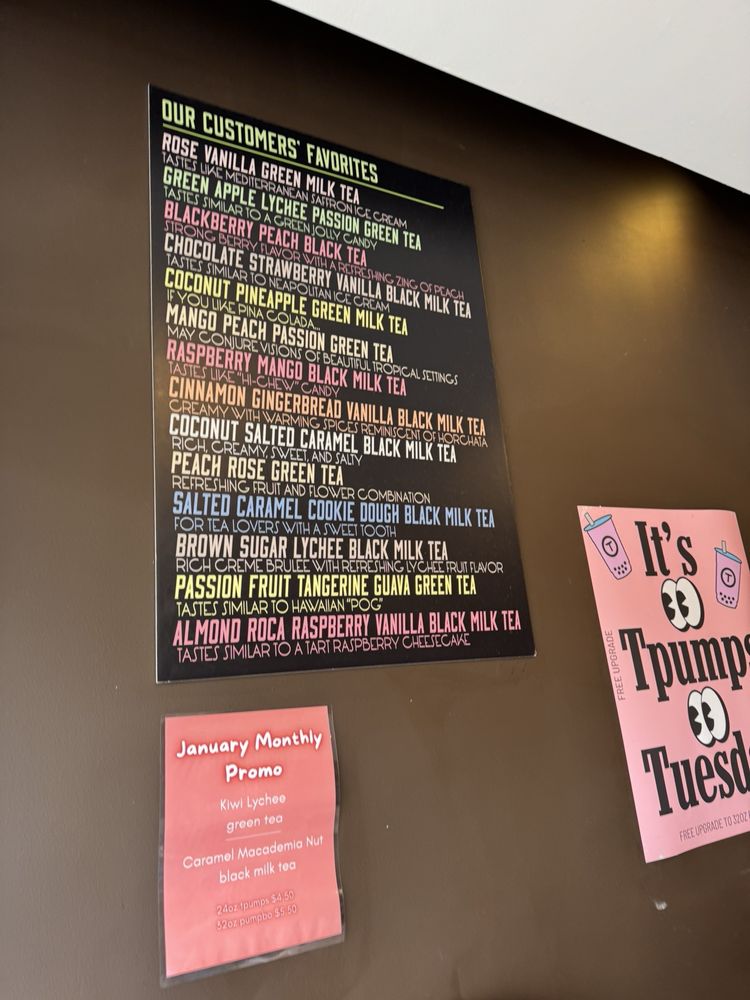 OUR CUSTOMERS' FAVORITES
ROSE VANILLA GREEN MILK TEA
TASTES LIKE MEDITERRANEAN SAFFRON ICE CREAM
GREEN APPLE LYCHEE PASSION GREEN TEA
TASTES SIMILAR TO A GREEN JOLLY CANDY
BLACKBERRY PEACH BLACK TEA
STRONG BERRY FLAVOR WITH A REFRESHING ZING OF PEACH
CHOCOLATE STRAWBERRY VANILLA BLACK MILK TEA
TASTES SIMILAR TO NEAPOLITAN ICE CREAM
COCONUT PINEAPPLE GREEN MILK TEA
IF YOU LIKE PINA COLADA...
MANGO PEACH PASSION GREEN TEA
MAY CONJURE VISIONS OF BEAUTIFUL TROPICAL SETTINGS
RASPBERRY MANGO BLACK MILK TEA
TASTES LIKE "HI-CHEW" CANDY
CINNAMON GINGERBREAD VANILLA BLACK MILK TEA
CREAMY WITH WARMING SPICES REMINISCENT OF HORCHATA
COCONUT SALTED CARAMEL BLACK MILK TEA
RICH, CREAMY, SWEET, AND SALTY
PEACH ROSE GREEN TEA
REFRESHING FRUIT AND FLOWER COMBINATION
SALTED CARAMEL COOKIE DOUGH BLACK MILK TEA
FOR TEA LOVERS WITH A SWEET TOOTH
BROWN SUGAR LYCHEE BLACK MILK TEA
RICH CREME BRULEE WITH REFRESHING LYCHEE FRUIT FLAVOR
PASSION FRUIT TANGERINE GUAVA GREEN TEA
TASTES SIMILAR TO HAWAIIAN "POG"
ALMOND ROCA RASPBERRY VANILLA BLACK MILK TEA
TASTES SIMILAR TO A TART RASPBERRY CHEESECAKE
January Monthly
Promo
Kiwi Lychee
green tea
Caramel Macademia Nut
black milk tea
24oz tpumps $4.50
32oz pumpbo $5.50
It's
Tpumps
Tuesd
FREE UPGRADE
FREE UPGRADE TO 32OZ
T
T